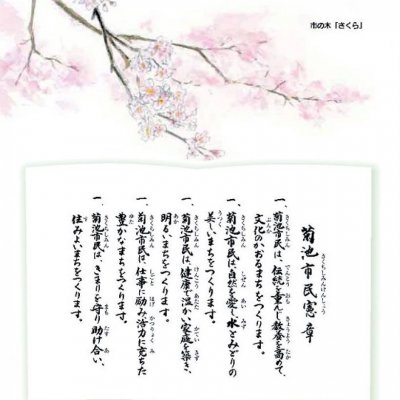 市の木「さくら」
菊池市民憲章
一、菊池市民は、伝統を重んじ教養を高めて、
文化のかおるまちをつくります。
一、菊池市民は、自然を愛し水とみどりの
美しいまちをつくります。
一、菊池市民は、健康で温かい家庭を築き、
明るいまちをつくります。
一、菊池市民は、仕事に励み活力に充ちた
豊かなまちをつくります。
一、菊池市民は、きまりを守り助け合い、
住みよいまちをつくります。